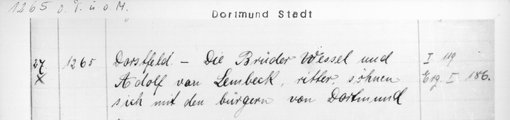 1265 o. T. u. o. M.
Dortmund Stadt
27 1265 Dorstfeld – Die Brüder Wessel und I 119
X Adolf van Lembeck, ritter söhnen Erg I 186.
sich mit den bürgern von Dortmund